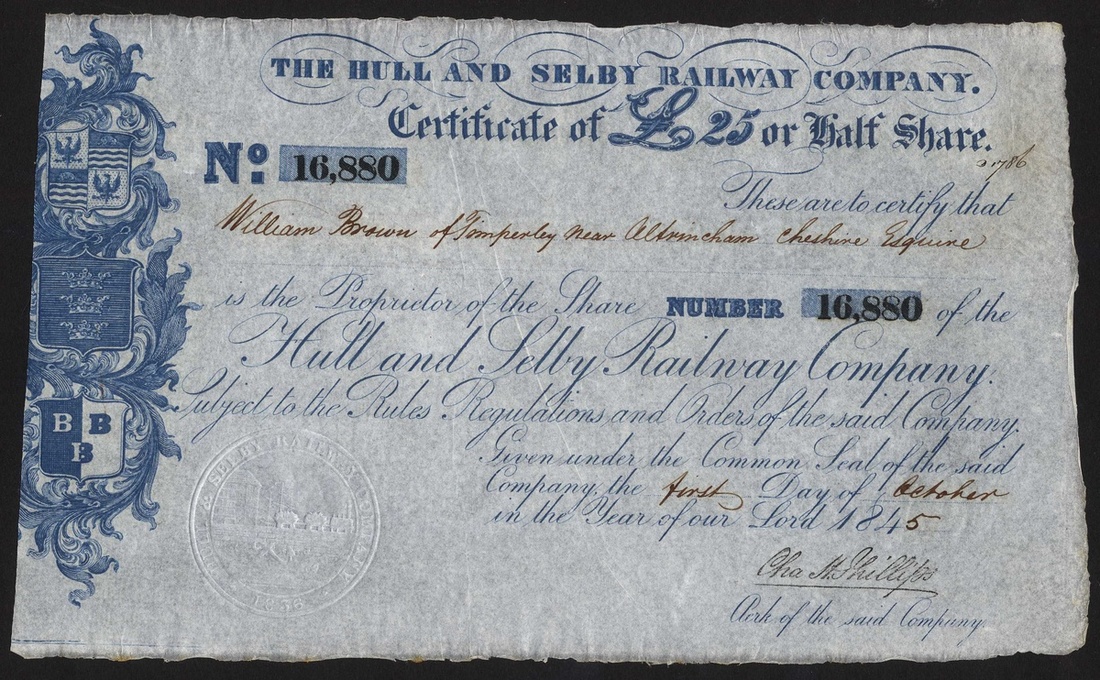 THE HULL AND SELBY RAILWAY COMPANY.
Certificate of £25 or Half Share.
No: 16,880
1786
These are to certify that
William Brown of Timperley near Altrincham Cheshire Esquire
is the Proprietor of the Share NUMBER 16,880 of the
Hull and Selby Railway Company.
Subject to the Rules Regulations and Orders of the said Company.
Given under the Common Seal of the said
Company, the first Day of October
in the Year of our Lord 1845
Cha H Phillips
Clerk of the said Company.
B B
B
& SELBY RAILWAY COMPANY
1836